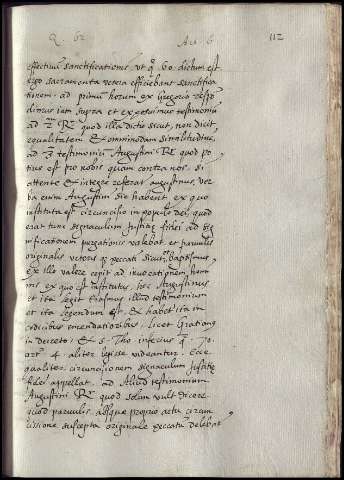 Q. 62 Ar. 6 112
effectivū sanctificationis ut q. 60. dictum est
ergo sacramenta vetera efficiebant sanctifica
tionem. ad primū horum ex Gregorio respō
dimus iam supra et exposuimus testimonium
ad 2m R. quod illa dictio sicut, non dicit
equalitatem & omnimodam similitudinē,
ad 3m testimoniū Augustini R. quod po
tius est pro nobis quam contra nos. si
attente & integre referat augustinus, ver
ba enim Augustini sic habent ex quo
instituta est circuncisio in populo dei, quod
erat tunc signaculum Iustitię fidei ad sig
nificationem purgationis valebat et parvulis
originalis veteris que peccati sicut baptismus
ex illo valere cepit ad inuocationem homi
nis ex quo est institutus, hec Augustinus
et ita legit Erasmus illud testimonium
et ita legendum est. & habet ita in
codicibus emendatioribus, licet Gratianus
in decreto & S. Tho. inferius q. 70.
art. 4 aliter legisse videantur. Ecce
qualiter circuncisionem signaculum Iustitię
fidei appellat. ad Aliud testimonium
Augustini R. quod solum vult dicere
quod parvulis absque proprio actu circun
cisione suscepta originale peccatū delebat